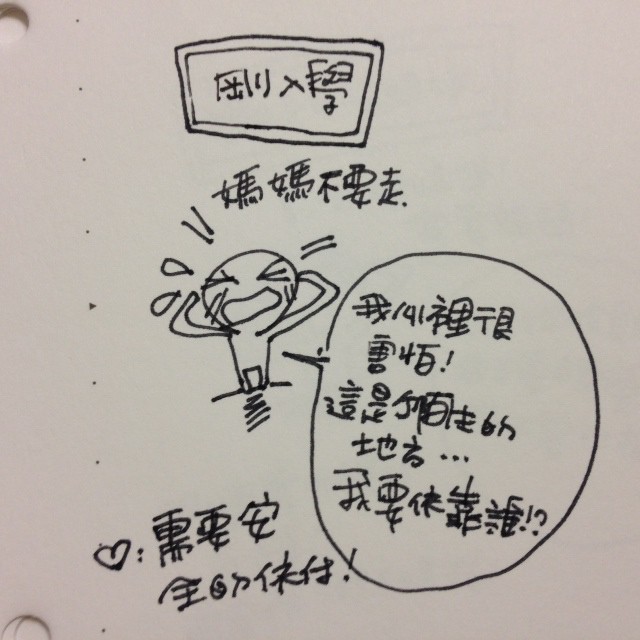 剛入學
媽媽不要走
我心裡很
害怕!
這是個陌生的
地方...
我要依靠誰!?
♡:需要安
全的依付!